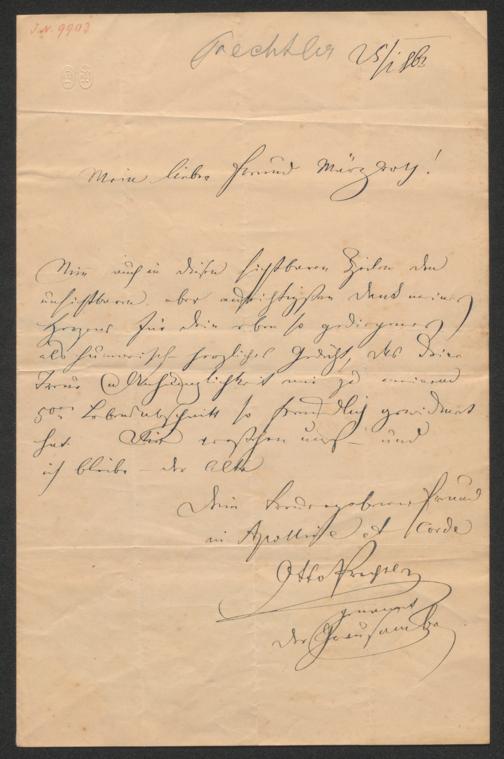 I.N. 9903
Prechtler 25/I 863
Mein lieber Freund Märzroth!
Nim auch in diesen sichtbaren Zeilen den
unsichtbaren aber aufrichtigsten Dank meines
Herzens für Dein eben so gediegenes
als humorisch herzliches Gedicht, das Deine
Treue u Anhänglichkeit mir zu meinem
50ten Lebensabschnitt so freundlich gewidmet
hat. Wir verstehen uns – und
ich bleibe – der Alte
Dein treuergebener Freund
in Apolline et Corde
Otto Prechtler
genannt
der